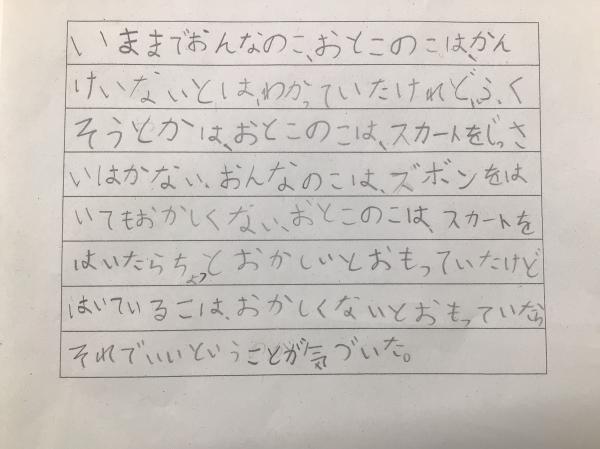 いままでおんなのこ、おとこのこは、かん
けいないとは、わかっていたけれど、ふく
そうとかは、おとこのこは、スカートをじっさ
いはかない、おんなのこは、ズボンをは
いてもおかしくない、おとこのこは、スカートを
はいたらちょっとおかしいとおもっていたけど
はいているこは、おかしくないとおもっていたなら
それでいいということが気づいた。